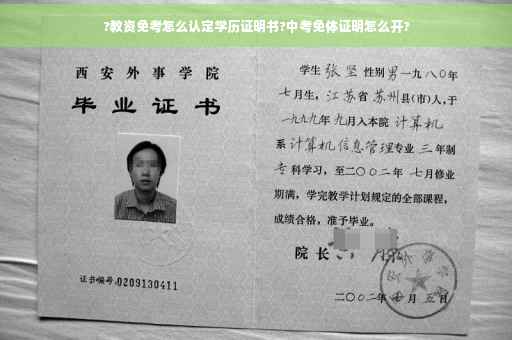 ?教资免考怎么认定学历证明书?中考免体证明怎么开?
西安外事学院
毕业证书
证书编号:0209130411
学生 张坚 性别 男 一九八〇年
七月生,江苏省 苏州 县(市)人,于
一九九九年 九月入本院 计算机
系 计算机信息管理 专业 三 年制
专 科学习,至二〇〇二年 七月修业
期满,学完教学计划规定的全部课程,
成绩合格,准予毕业。
院长
二〇〇二年 月 五日